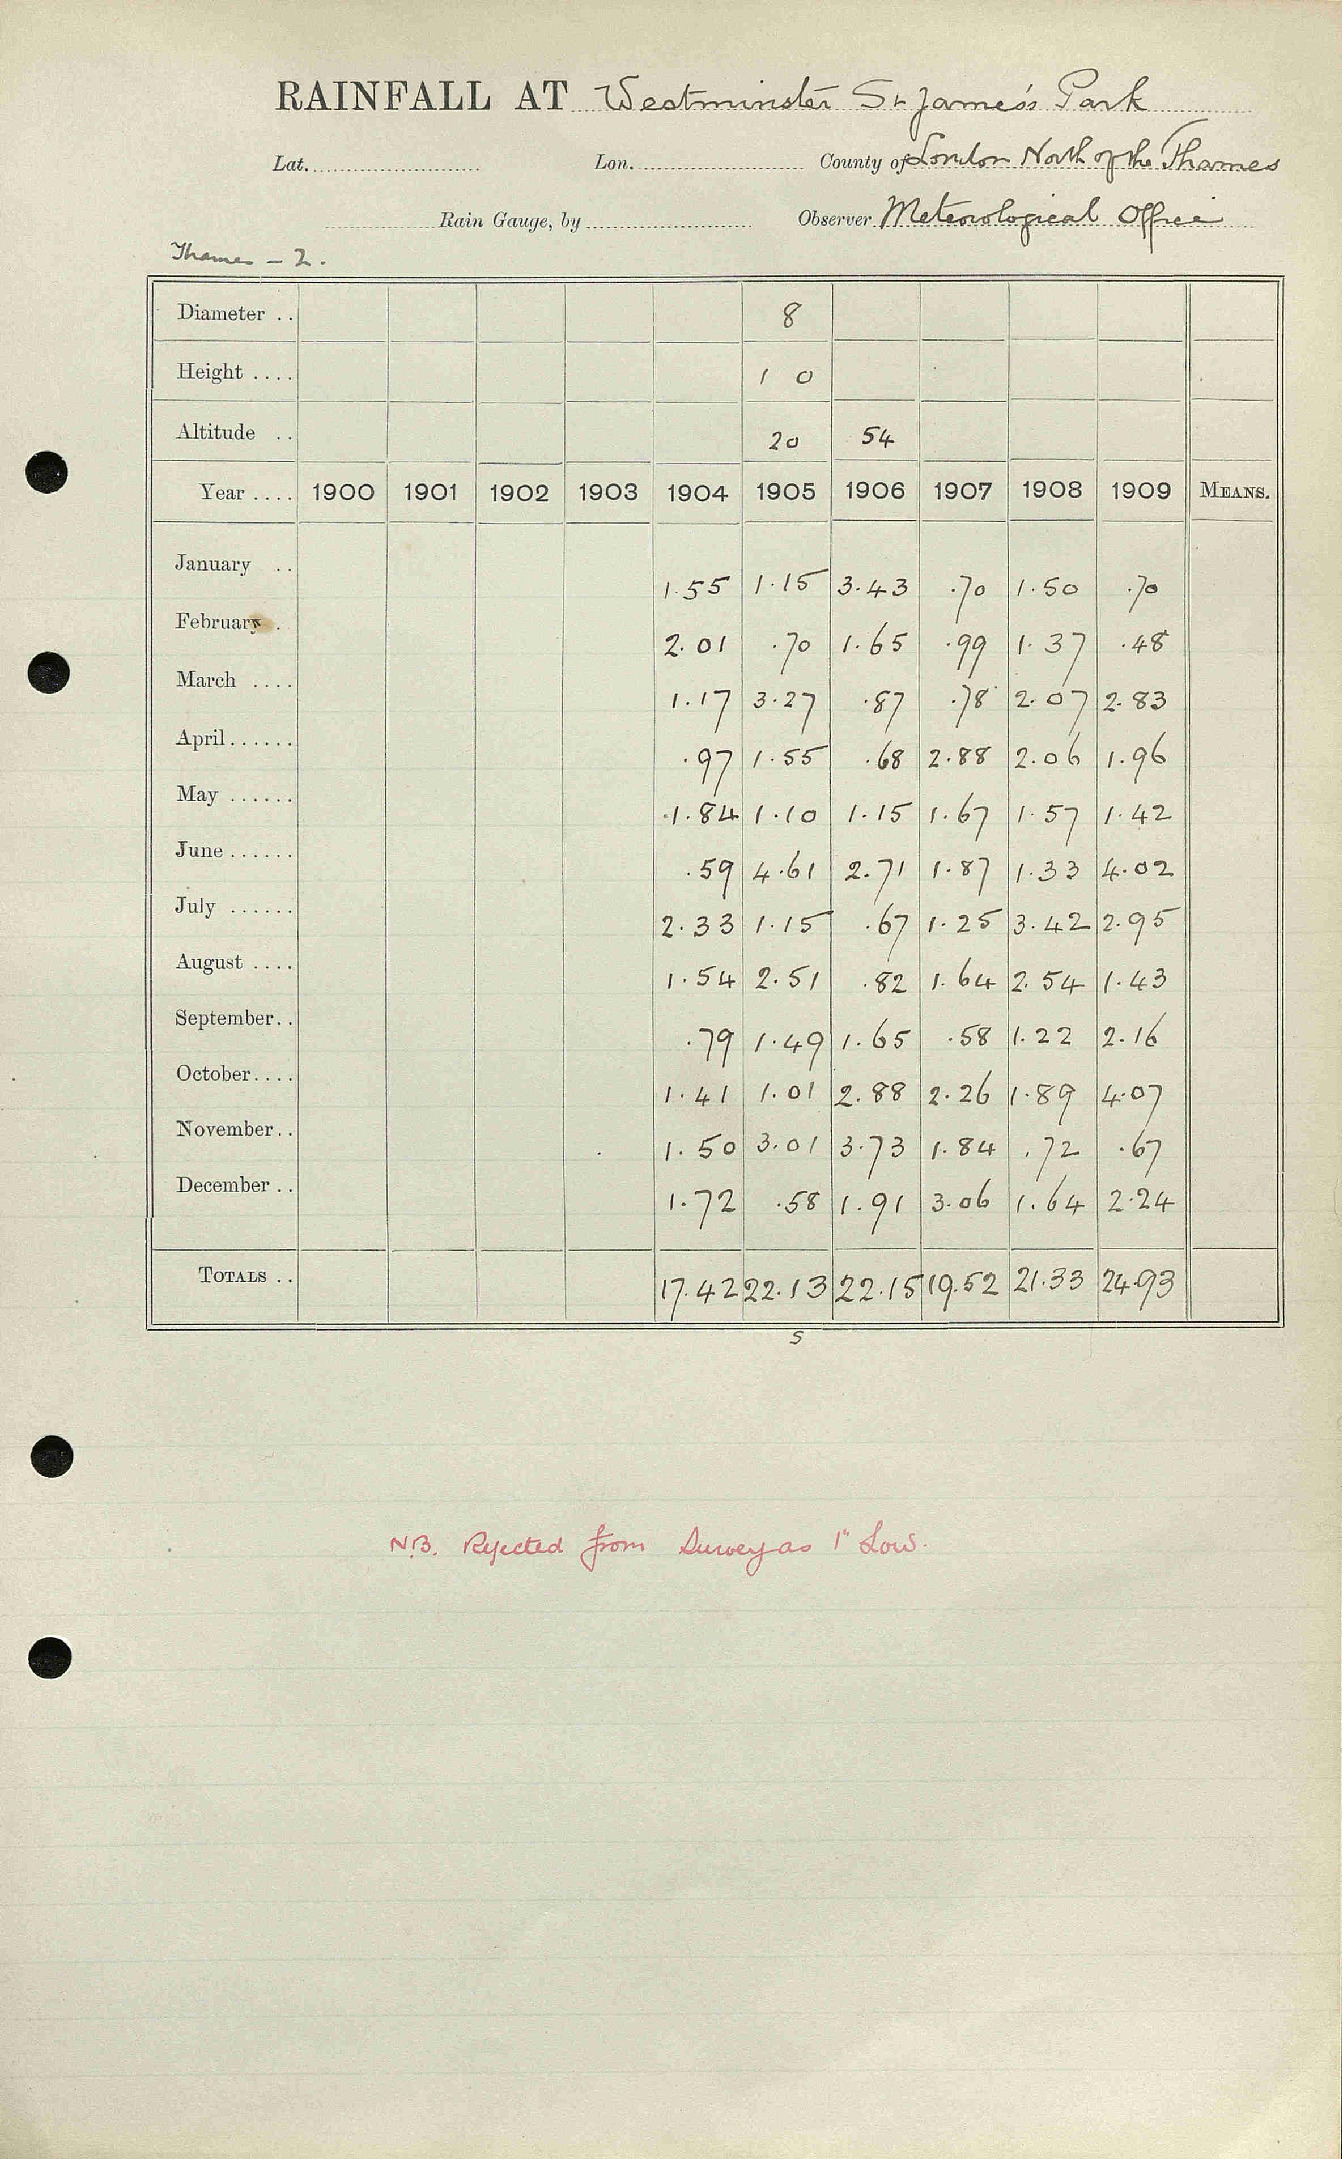 RAINFALL AT Westminster St James's Park
Lat. Lon. County of London North of the Thames
Rain Gauge, by Observer Meteorological Office
Thames - 2.
Diameter .. 8
Height .... 1 0
Altitude .. 20 54
Year .... 1900 1901 1902 1903 1904 1905 1906 1907 1908 1909 MEANS.
January .. 1.55 1.15 3.43 .70 1.50 .70
February . 2.01 .70 1.65 .99 1.37 .48
March .... 1.17 3.27 .87 .78 2.07 2.83
April...... .97 1.55 .68 2.88 2.06 1.96
May ...... 1.84 1.10 1.15 1.67 1.57 1.42
June ...... .59 4.61 2.71 1.87 1.33 4.02
July ...... 2.33 1.15 .67 1.25 3.42 2.95
August .... 1.54 2.51 .82 1.64 2.54 1.43
September.. .79 1.49 1.65 .58 1.22 2.16
October.... 1.41 1.01 2.88 2.26 1.89 4.07
November.. 1.50 3.01 3.73 1.84 .72 .67
December .. 1.72 .58 1.91 3.06 1.64 2.24
TOTALS .. 17.42 22.13 22.15 19.52 21.33 24.93
S
N.B. Rejected from Survey as 1" Low.